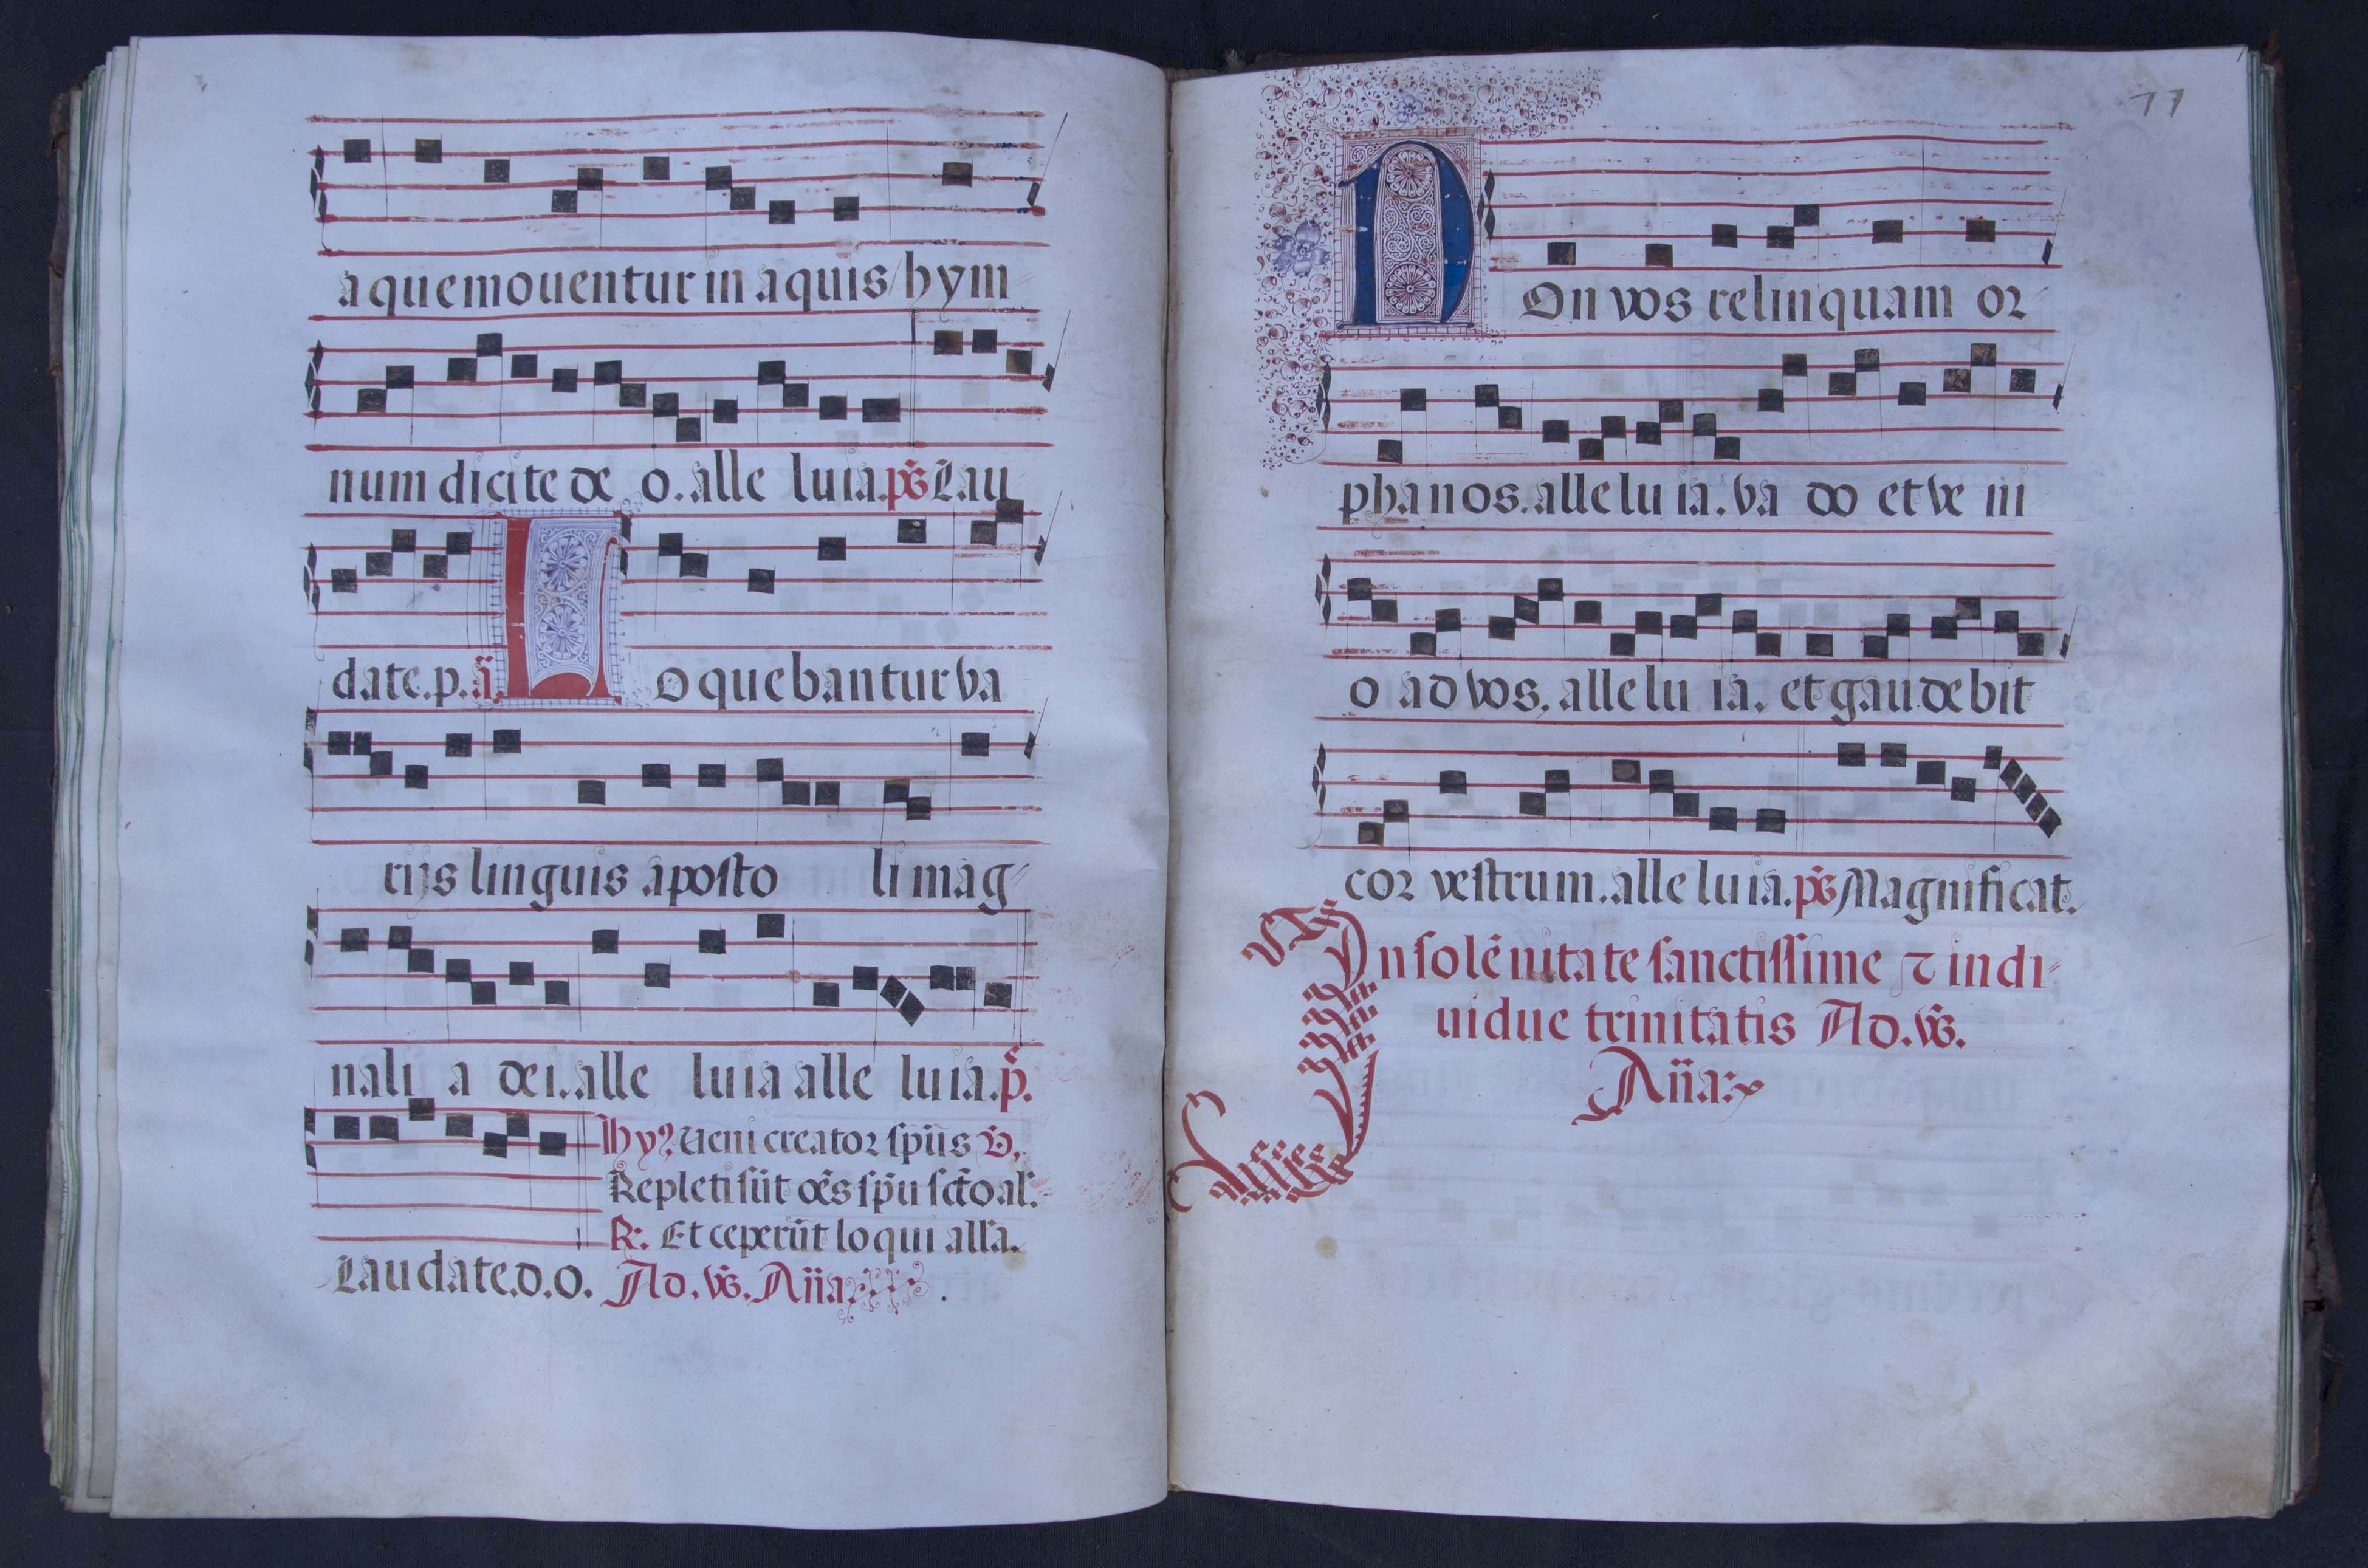 a que mouentur in aquis / hym
num dicite de o. alle luia. ps̄ Lau
date. p. ā. Loquebantur va
rijs linguis aposto li mag
nali a dei. alle luia alle luia. p̄.
Hyʒ Ueni creator sp̄us V̄.
Repleti sūt oēs sp̄u sct̄o al'.
R: Et ceperūt loqui all'a.
Laudate. d. o. Ad. v̄s. Añа:
77
Non vos relinquam or
phanos. alleluia. va do et ve ni
o ad vos, alle lu ia. et gaudebit
cor vestrum. alle luia. ps̄ Magnificat.
In solēnitate sanctissime ⁊ indi
uidue trinitatis Ad. v̄s.
Aña: